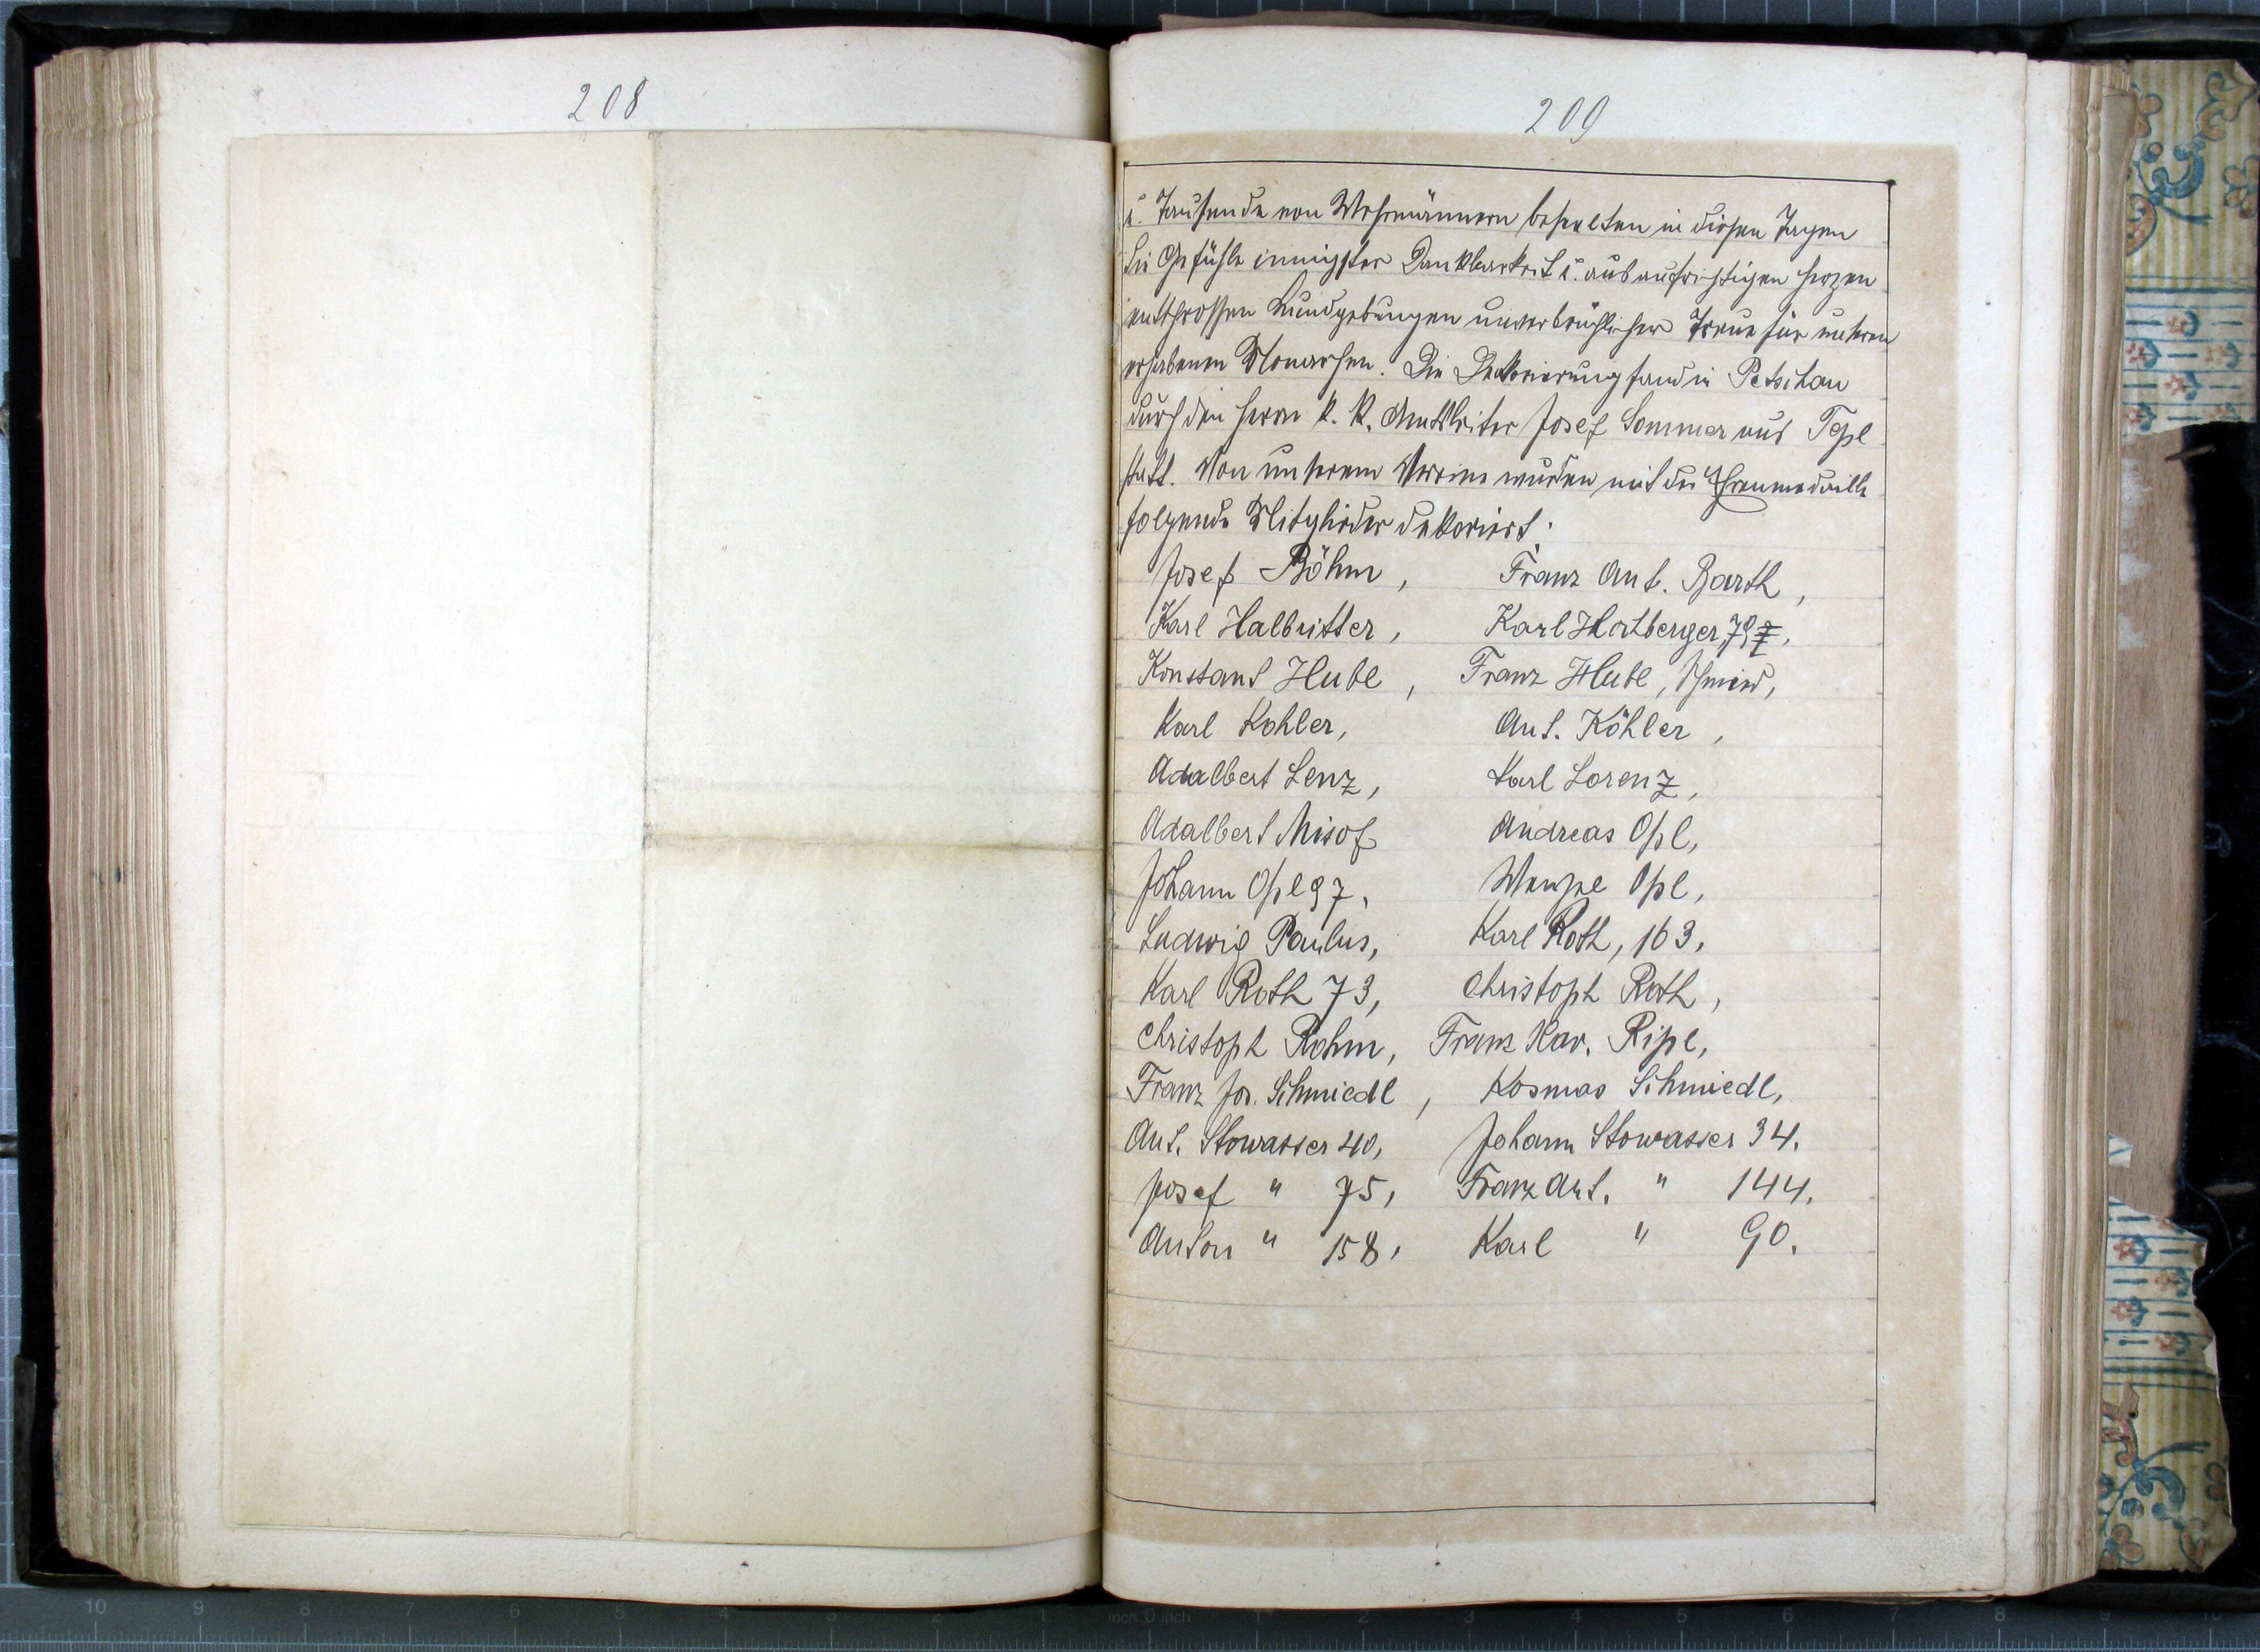 208
209
u. Tausende von Wehrmännern beseelten in diesen Tagen
die Gefühle innigster Dankbarkeit u. aus aufrichtigen Herzen
entsprossen Kundgebungen unverbrüchlicher Treue für unseren
erhabenen Monarchen. Die Dekorierung fand in Petschau
durch den Herrn k. k. Amtsleiter Josef Sommer aus Tepl
statt. Von unserem Vereine wurden mit der Ehrenmedaille
folgende Mitglieder dekoriert:
Josef Böhm, Franz Ant. Barth,
Karl Halbritter, Karl Hertberger,
Konstant Hubl, Franz Hubl, Schmied,
Karl Kohler, Ant. Köhler,
Adalbert Lenz, Karl Lorenz,
Adalbert Misof Andreas Opl,
Johann Opl 97, Wenzl Opl,
Ludwig Paulus, Karl Roth, 163,
Karl Roth 73, Christoph Roth,
Christoph Rohm, Franz Xav. Ripl,
Franz Jos. Schmiedl, Kosmas Schmiedl,
Ant. Stowasser 40, Johann Stowasser 34.
Josef " 75, Franz Ant. " 144.
Anton " 158, Karl " 90.
10 9 8 7 6 5 4 3 2 1 inch 0 inch 1 2 3 4 5 6 7 8 9 10